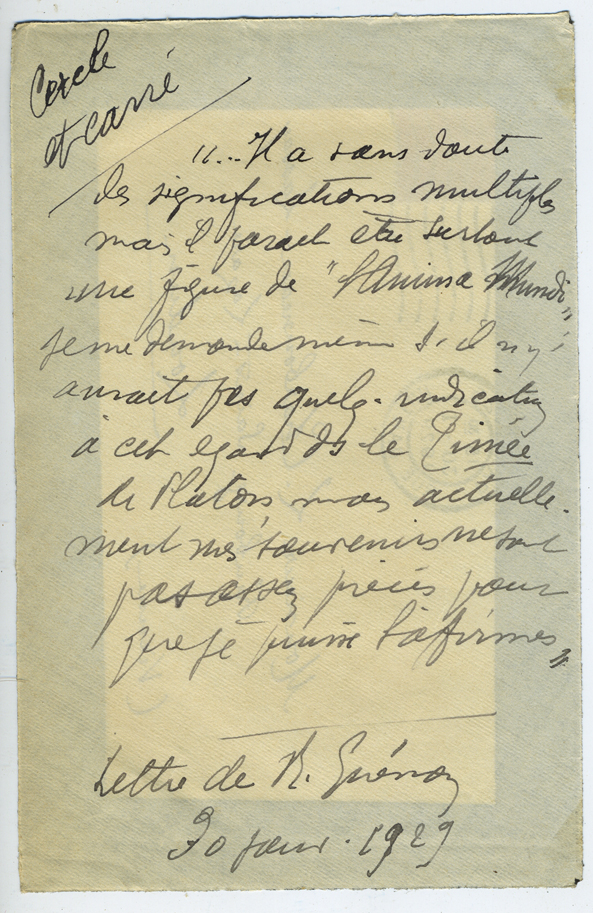 Cercle
et carré
"...Il a sans doute
des significations multiples
mais il parait être surtout
une figure de "l'Anima Mundi"
je me demande même s'il n'y
aurait pas quelq. indication
à cet egard ds le Timée
de Platon mais actuelle-
ment mes souvenirs ne sont
pas assez précis pour
que je puisse l'affirmer"
Lettre de R. Guénon
30 janv. 1929